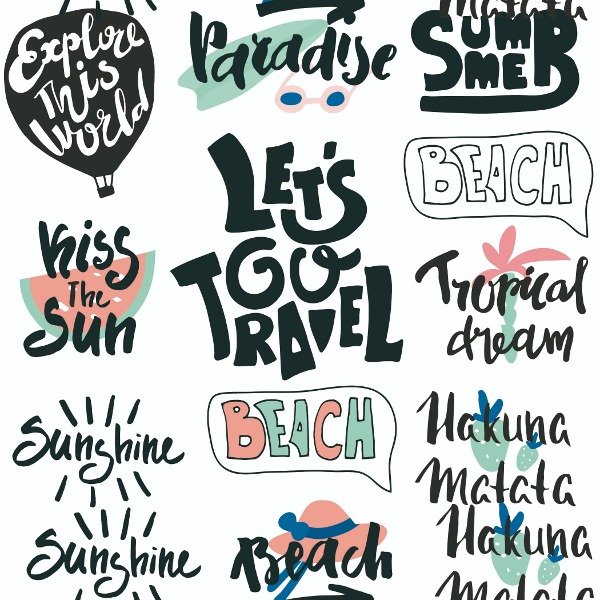 Explore
This
World
Paradise
Matata
SUM
MER
BEACH
LET'S
GO
TRAVEL
Kiss
The
Sun
Tropical
dream
Sunshine
BEACH
Hakuna
Matata
Sunshine
Beach
Hakuna
Matata